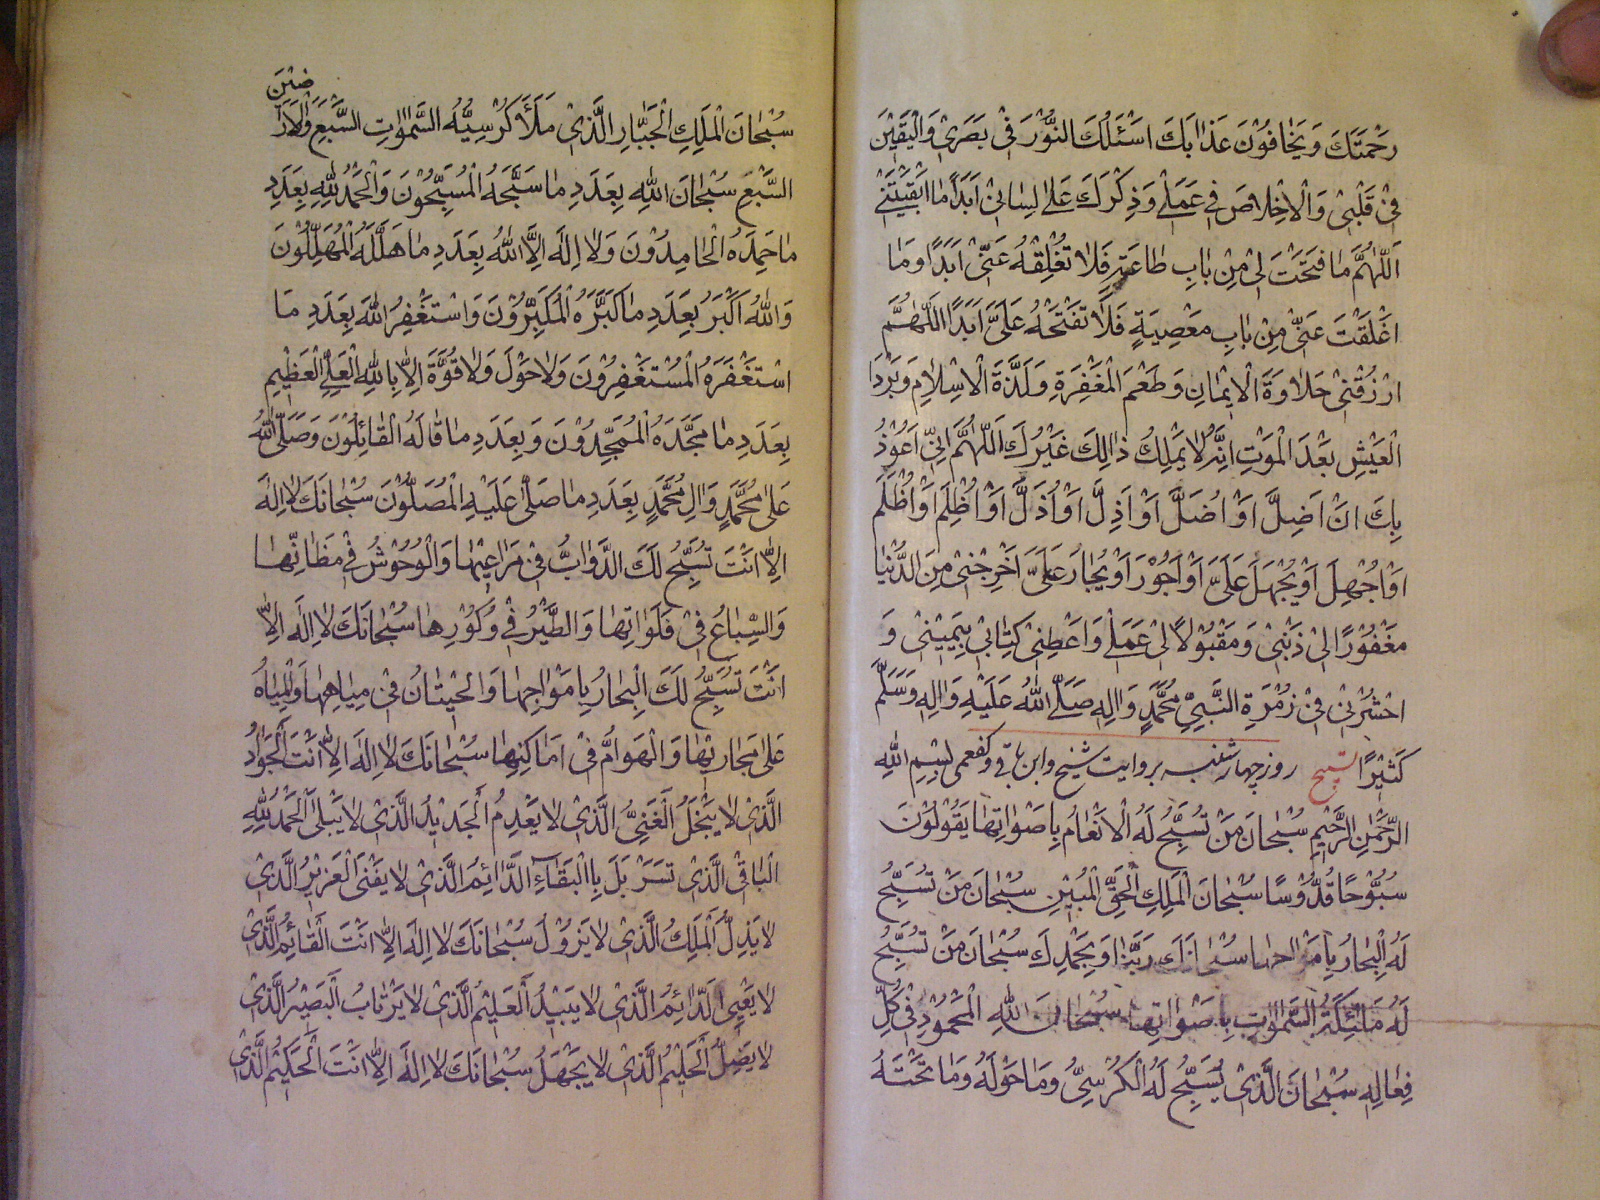 رَحْمَتَكَ وَيَخٰافُوْنَ عَذٰابَكَ اَسْئَلُكَ النُّوْرَ فِيْ بَصَرِيْ وَالْيَقِيْنَ
فِيْ قَلْبِيْ وَالْاِخْلاٰصَ فِيْ عَمَلِيْ وَذِكْرَكَ عَلىٰ لِسٰانِيْ اَبَدًا مٰا اَبْقَيْتَنِيْ
اَللّٰهُمَّ مٰا فَتَحْتَ لِيْ مِنْ بٰابِ طٰاعَةٍ فَلاٰ تُغْلِقْهُ عَنّيْ اَبَدًا وَمٰا
اَغْلَقْتَ عَنّيْ مِنْ بٰابِ مَعْصِيَةٍ فَلاٰ تَفْتَحْهُ عَلَيَّ اَبَدًا اَللّٰهُمَّ
ارْزُقْنِيْ حَلاٰوَةَ الْاِيْمٰانِ وَطَعْمَ الْمَغْفِرَةِ وَلَذَّةَ الْاِسْلاٰمِ وَبَرْدَ
الْعَيْشِ بَعْدَ الْمَوْتِ اِنَّهُ لاٰ يَمْلِكُ ذٰالِكَ غَيْرُكَ اَللّٰهُمَّ اِنّيْ اَعُوْذُ
بِكَ اَنْ اَضِلَّ اَوْ اُضَلَّ اَوْ اَذِلَّ اَوْ اُذَلَّ اَوْ اَظْلِمَ اَوْ اُظْلَمَ
اَوْ اَجْهِلَ اَوْ يُجْهَلَ عَلَيَّ اَوْ اَجُوْرَ اَوْ يُجٰارُ عَلَيَّ اَخْرِجْنِيْ مِنَ الدُّنْيٰا
مَغْفُوْرًا لِيْ ذَنْبِيْ وَمَقْبُوْلًا لِيْ عَمَلِيْ وَاَعْطِنِيْ كِتٰابِيْ بِيَمِيْنِيْ وَ
احْشُرْنِيْ فِيْ زُمْرَةِ النَّبِيِّ مُحَمَّدٍ وَاٰلِهِ صَلَّى اللّٰهُ عَلَيْهِ وَاٰلِهِ وَسَلَّمَ
كَثِيْرًا تسبيح روز چهارشنبه بروايت شيخ وابن باقي وكفعمي بِسْمِ اللّٰهِ
الرَّحْمٰنِ الرَّحِيْمِ سُبْحٰانَ مَنْ تُسَبِّحُ لَهُ الْاَنْعٰامُ بِاَصْوٰاتِهٰا يَقُوْلُوْنَ
سُبُّوْحًا قُدُّوْسًا سُبْحٰانَ الْمَلِكِ الْحَقِّ الْمُبِيْنِ سُبْحٰانَ مَنْ تُسَبِّحُ
لَهُ الْبِحٰارُ بِاَمْوٰاجِهٰا سُبْحٰانَكَ رَبَّنٰا وَبِحَمْدِكَ سُبْحٰانَ مَنْ تُسَبِّحُ
لَهُ مَلٰئِكَةُ السَّمٰوٰتِ بِاَصْوٰاتِهٰا سُبْحٰانَ اللّٰهِ الْمَحْمُوْدِ فِيْ كُلِّ
فِعٰالِهِ سُبْحٰانَ الَّذِيْ يُسَبِّحُ لَهُ الْكُرْسِيُّ وَمٰا حَوْلَهُ وَمٰا تَحْتَهُ
سُبْحٰانَ الْمَلِكِ الْجَبّٰارِ الَّذِيْ مَلَأَ كُرْسِيُّهُ السَّمٰوٰتِ السَّبْعَ وَالْاَرَضِيْنَ
السَّبْعَ سُبْحٰانَ اللّٰهِ بِعَدَدِ مٰا سَبَّحَهُ الْمُسَبِّحُوْنَ وَالْحَمْدُ لِلّٰهِ بِعَدَدِ
مٰا حَمِدَهُ الْحٰامِدُوْنَ وَلاٰ اِلٰهَ اِلَّا اللّٰهُ بِعَدَدِ مٰا هَلَّلَهُ الْمُهَلِّلُوْنَ
وَاللّٰهُ اَكْبَرُ بِعَدَدِ مٰا كَبَّرَهُ الْمُكَبِّرُوْنَ وَاَسْتَغْفِرُ اللّٰهَ بِعَدَدِ مٰا
اسْتَغْفَرَهُ الْمُسْتَغْفِرُوْنَ وَلاٰ حَوْلَ وَلاٰ قُوَّةَ اِلاّٰ بِاللّٰهِ الْعَلِيِّ الْعَظِيْمِ
بِعَدَدِ مٰا مَجَّدَهُ الْمُمَجِّدُوْنَ وَبِعَدَدِ مٰا قٰالَهُ الْقٰائِلُوْنَ وَصَلَّى اللّٰهُ
عَلىٰ مُحَمَّدٍ وَاٰلِ مُحَمَّدٍ بِعَدَدِ مٰا صَلّىٰ عَلَيْهِ الْمُصَلُّوْنَ سُبْحٰانَكَ لاٰ اِلٰهَ
اِلاّٰ اَنْتَ تُسَبِّحُ لَكَ الدَّوٰابُّ فِيْ مَرٰاعِيْهٰا وَالْوُحُوْشُ فِيْ مَظٰانِّهٰا
وَالسِّبٰاعُ فِيْ فَلَوٰاتِهٰا وَالطَّيْرُ فِيْ وُكُوْرِهٰا سُبْحٰانَكَ لاٰ اِلٰهَ اِلاّٰ
اَنْتَ تُسَبِّحُ لَكَ الْبِحٰارُ بِاَمْوٰاجِهٰا وَالْحِيْتٰانُ فِيْ مِيٰاهِهٰا وَالْمِيٰاهُ
عَلىٰ مَجٰارِيْهٰا وَالْهَوٰامُّ فِيْ اَمٰاكِنِهٰا سُبْحٰانَكَ لاٰ اِلٰهَ اِلاّٰ اَنْتَ الْجَوٰادُ
الَّذِيْ لاٰ يَبْخَلُ الْغَنِيُّ الَّذِيْ لاٰ يَعْدِمُ الْجَدِيْدُ الَّذِيْ لاٰ يَبْلىٰ اَلْحَمْدُ لِلّٰهِ
الْبٰاقِي الَّذِيْ تَسَرْبَلَ بِالْبَقٰاءِ الدّٰائِمُ الَّذِيْ لاٰ يَفْنىٰ الْعَزِيْزُ الَّذِيْ
لاٰ يَذِلُّ الْمَلِكُ الَّذِيْ لاٰ يَزُوْلُ سُبْحٰانَكَ لاٰ اِلٰهَ اِلاّٰ اَنْتَ الْقٰائِمُ الَّذِيْ
لاٰ يَعْيىٰ الدّٰائِمُ الَّذِيْ لاٰ يَبِيْدُ الْعَلِيْمُ الَّذِيْ لاٰ يَرْتٰابُ الْبَصِيْرُ الَّذِيْ
لاٰ يَضِلُّ الْحَلِيْمُ الَّذِيْ لاٰ يَجْهَلُ سُبْحٰانَكَ لاٰ اِلٰهَ اِلاّٰ اَنْتَ الْحَكِيْمُ الَّذِيْ